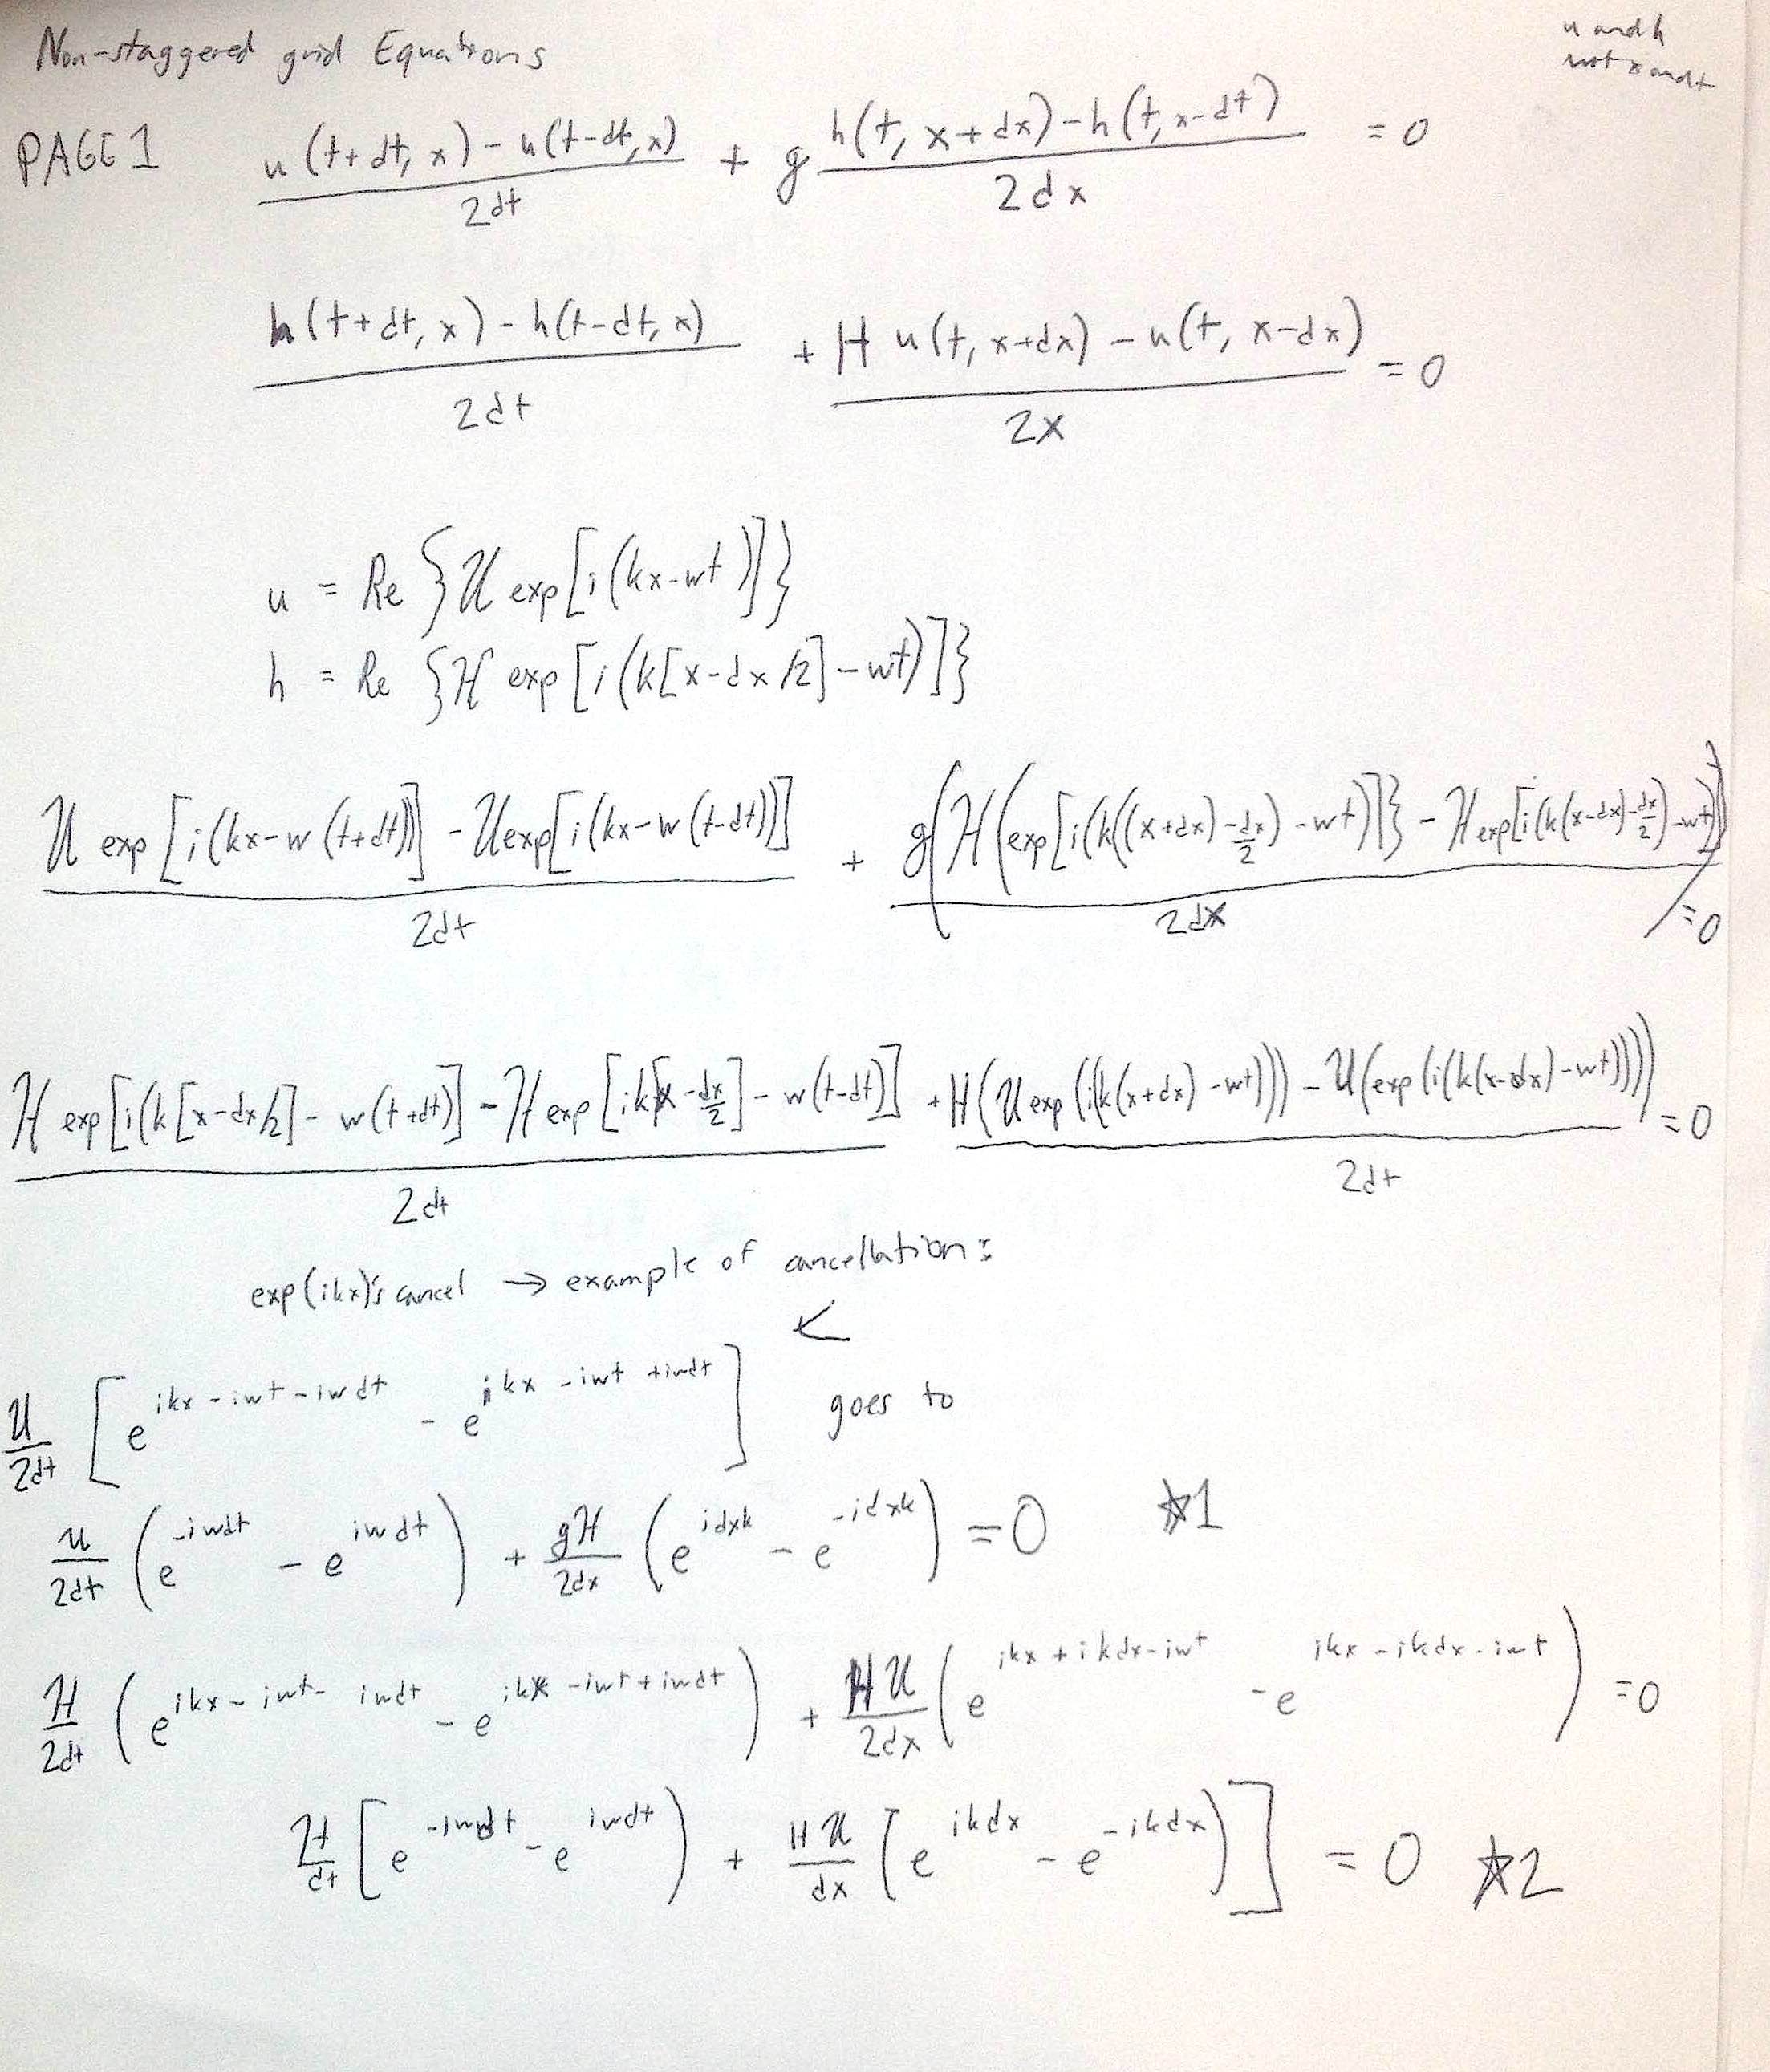 Non-staggered grid Equations
u and h
not x and t
PAGE 1
(u(t+dt, x) - u(t-dt, x))/2dt + g (h(t, x+dx) - h(t, x-dt))/2dx = 0
(h(t+dt, x) - h(t-dt, x))/2dt + (H u(t, x+dx) - u(t, x-dx))/2x = 0
u = Re {𝒰 exp[i(kx-wt)]}
h = Re {ℋ exp[i(k[x-dx/2]-wt)]}
(𝒰 exp[i(kx-w(t+dt))] - 𝒰exp[i(kx-w(t-dt))])/2dt + g(ℋ(exp[i(k((x+dx)-dx/2)-wt)]} - ℋexp[i(k(x-dx)-dx/2)-wt)])/2dx = 0
(ℋ exp[i(k[x-dx/2]- w(t+dt)] - ℋ exp[ik[x-dx/2]- w(t-dt)])/2dt + H(𝒰exp(i(k(x+dx)-wt))) - 𝒰(exp(i(k(x-dx)-wt))))/2dt = 0
exp(ikx)'s cancel → example of cancellation:
𝒰/2dt [e^(ikx-iwt-iwdt) - e^(ikx-iwt+iwdt)] goes to
𝒰/2dt (e^(-iwdt) - e^(iwdt)) + gℋ/2dx (e^(idxk) - e^(-idxk)) = 0 ☆1
ℋ/2dt (e^(ikx-iwt-iwdt) - e^(ikx-iwt+iwdt)) + H𝒰/2dx (e^(ikx+ikdx-iwt) - e^(ikx-ikdx-iwt)) = 0
ℋ/dt [e^(-iwdt) - e^(iwdt)) + H𝒰/dx [e^(ikdx) - e^(-ikdx))] = 0 ☆2